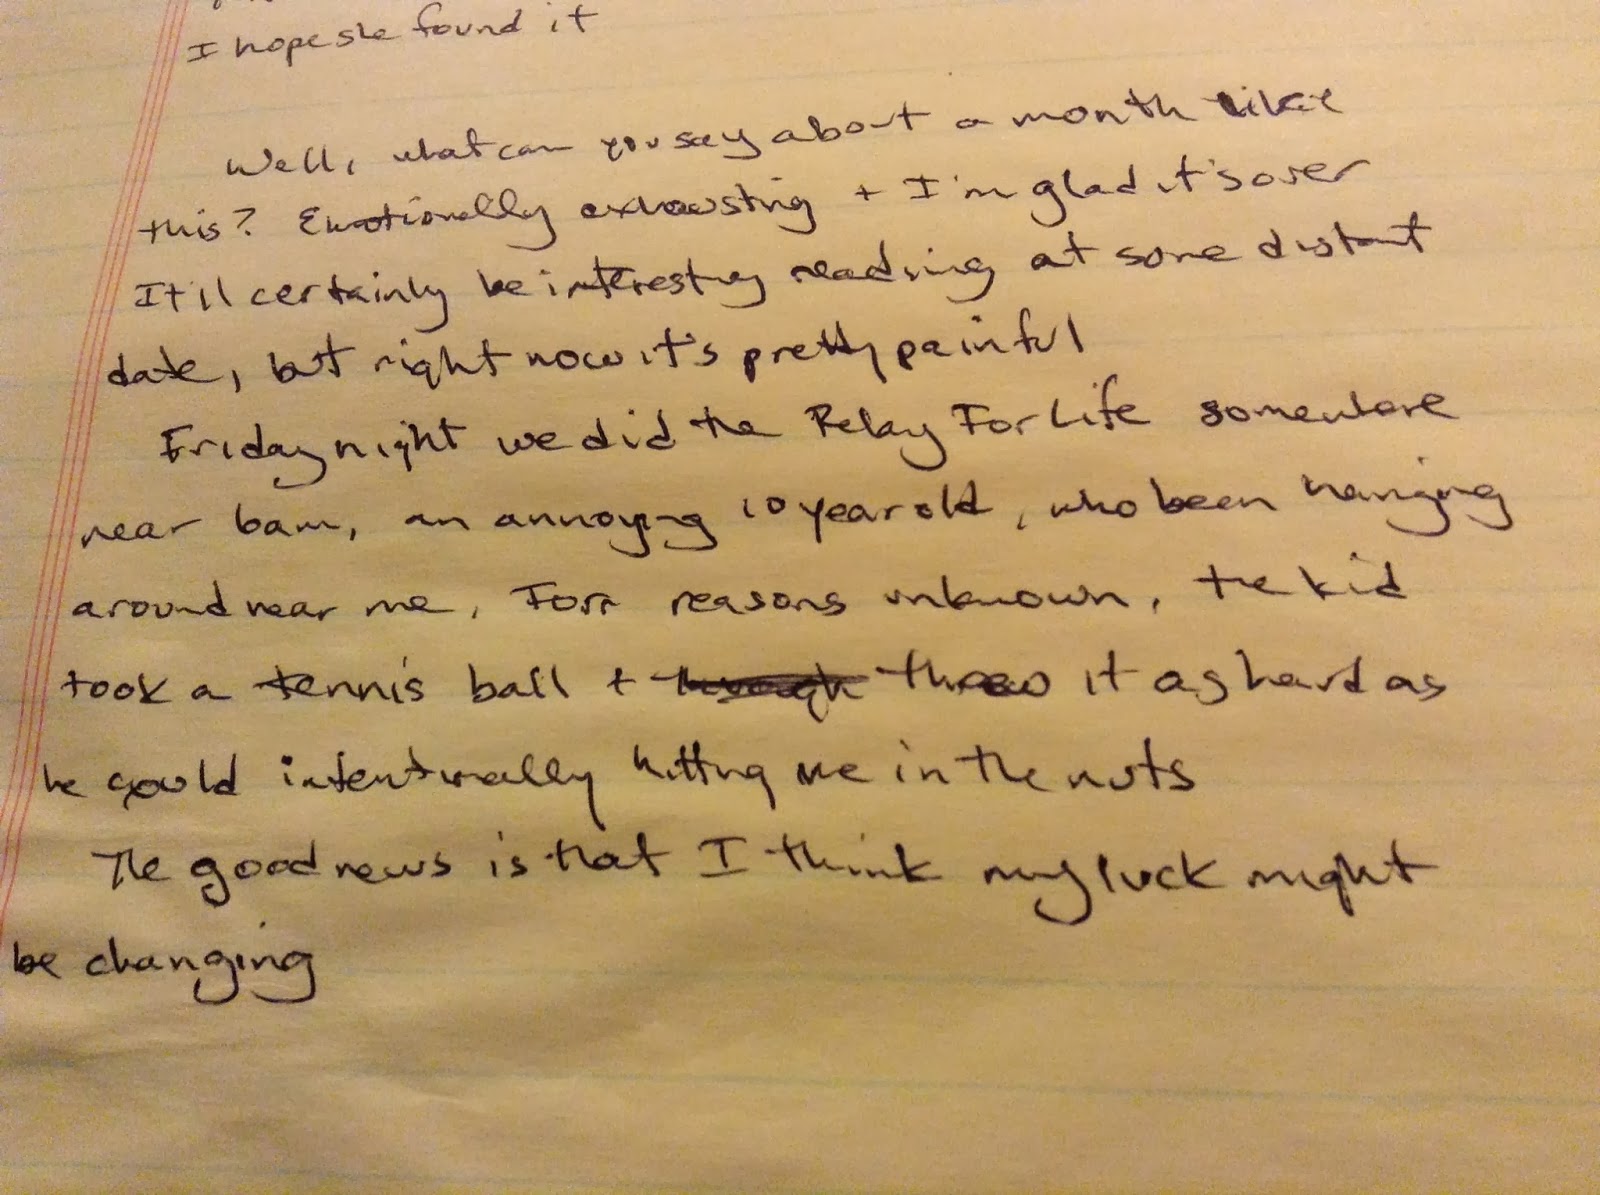 I hope she found it
Well, what can you say about a month like
this? Emotionally exhausting + I'm glad it's over
It'll certainly be interesting reading at some distant
date, but right now it's pretty painful
Friday night we did the Relay For Life somewhere
near 6am, an annoying 10 year old, who been hanging
around near me, For reasons unknown, the kid
took a tennis ball + threw it as hard as
he could intentionally hitting me in the nuts
The good news is that I think my luck might
be changing